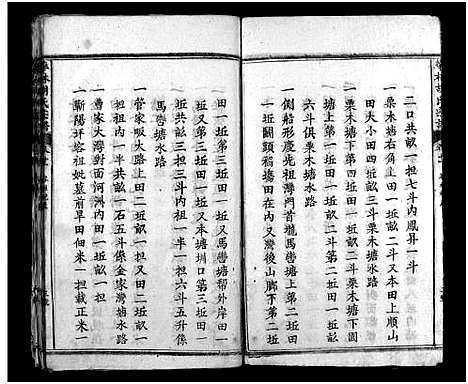 二口共畝一担七斗內鳳昇一斗
一栗木塘右角上田一坵二斗又本田上順山
田大小田四坵畝三斗栗木塘水路
一栗木塘下第四坵畝二斗栗木塘下圍
六斗俱栗木塘水路
一側船形慶先祖灣門首龍馬巒塘上第二坵田
一坵圍頸稻塲田在內又灣後山脚下第二坵
田一坵又馬巒塘幫外岸田一
坵又馬巒塘下本塘圳口第三坵田一
坵共畝三担三斗內祖一半一担六斗五升
馬巒塘水路
一管家㘭大路上田一坵畝一担又田二坵畝一
担祖內一半共畝一石五斗係金家灣塘水路
一曹家大灣對面河洲內田一坵畝一担
一蘄陽坪容祖妣墓前旱田佃米一担載正米一